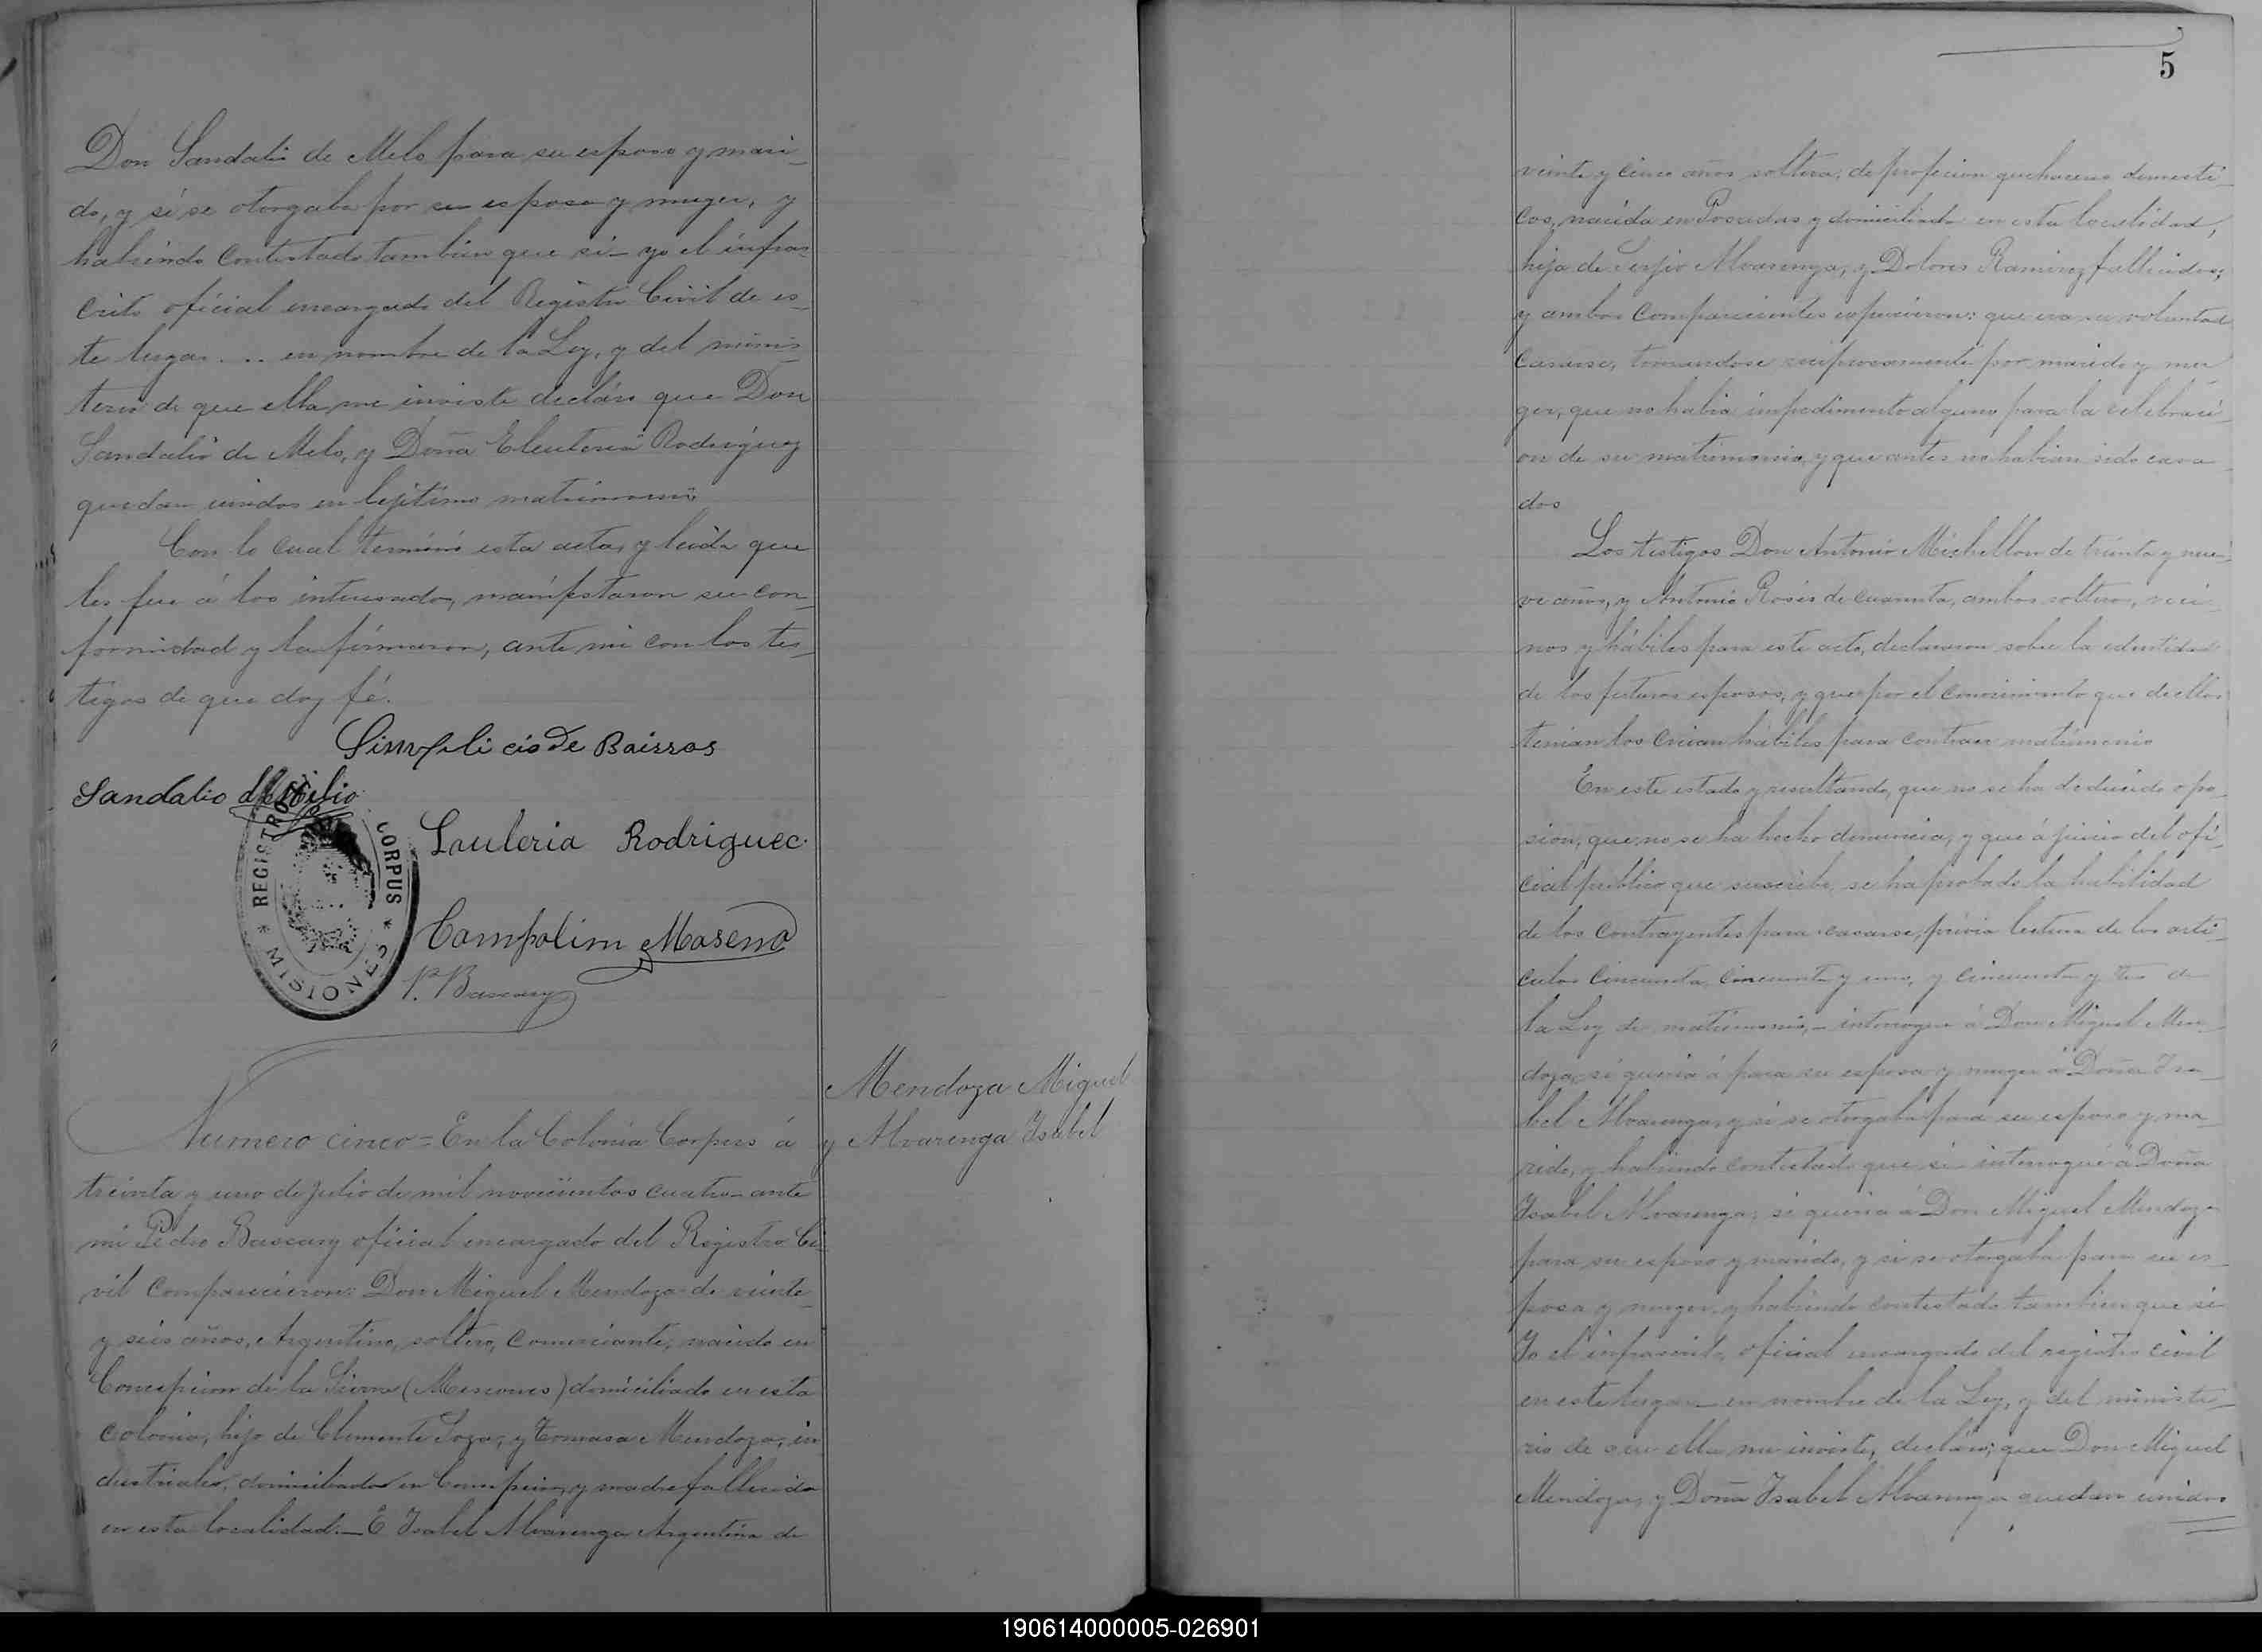 Don Sandalio de Melo para su esposo y mari-
do, y si se otorgaba por su esposa y muger, y
habiendo contestado tambien que si - yo el infras-
crito oficial encargado del Registro Civil de es-
te lugar ... en nombre de la Ley, y del minis-
terio de que ella me inviste decláro que Don
Sandalio de Melo, y Doña Eleuteria Rodriguez
quedan unidos en lejitimo matrimonio
Con lo cual terminó esta acta, y leida que
les fue á los interesados, manifestaron su con-
formidad y la firmaron, ante mi con los tes-
tigos de que doy fé.
Simplicio De Bairros
Sandalio
Lauleria Rodriguec.
REGISTRO
CORPUS
MISIONES
Campolim
P. Bascary
Mendoza Miguel
y Alvarenga Isabel
Numero cinco = En la Colonia Corpus á
treinta y uno de Julio de mil novecientos cuatro - ante
mi Pedro Bascary oficial encargado del Registro Ci-
vil comparecieron: Don Miguel Mendoza de veinte
y seis años, Argentino, soltero, comerciante, nacido en
Concepcion de la Sierra (Misiones) domiciliado en esta
colonia, hijo de Clemente y Tomasa Mendoza, in-
dustriales, domiciliados en Concepcion, y madre fallecida
en esta localidad. - E Isabel Alvarenga Argentina de
5
veinte y cinco años soltera, de profecion quehaceres domesti-
cos, nacida en Posadas y domiciliada en esta localidad,
hija de Serjio Alvarenga, y Dolores Ramirez fallecidos;
y ambos comparecientes espusieron: que era su voluntad
casarse, tomandose reciprocamente por marido y mu-
ger, que no habia impedimento alguno para la celebraci-
on de su matrimonio, y que antes no habian sido casa-
dos
Los testigos Don Antonio Michellon de treinta y nue-
ve años, y Antonio de cuarenta, ambos solteros, veci-
nos y hábiles para este acto, declararon sobre la identidad
de los futuros esposos, y que por el conocimiento que de ellos
tenian los creian habiles para contraer matrimonio
En este estado y resultando, que no se ha deducido opo-
sion, que no se ha hecho denuncia, y que á juicio del ofi-
cial publico que suscribe, se ha probado la habilidad
de los contrayentes para casarse, prévia lectura de los artí-
culos cincuenta, cincuenta y uno, y cincuenta y tres de
la Ley de matrimonio, - interrogue á Don Miguel Men-
doza, si queria á para su esposa y muger á Doña Isa-
bel Alvarenga, y si se otorgaba para su esposo y ma-
rido, y habiendo contestado que si - interrogué á Doña
Isabel Alvarenga, si queria á Don Miguel Mendoza
para su esposo y marido, y si se otorgaba para su es-
posa y muger, y habiendo contestado tambien que si
Yo el infrascrito, oficial encargado del registro civil
en este lugar - en nombre de la Ley, y del ministe-
rio de que ella me inviste, decláro; que Don Miguel
Mendoza, y Doña Isabel Alvarenga quedan unidos
190614000005-026901